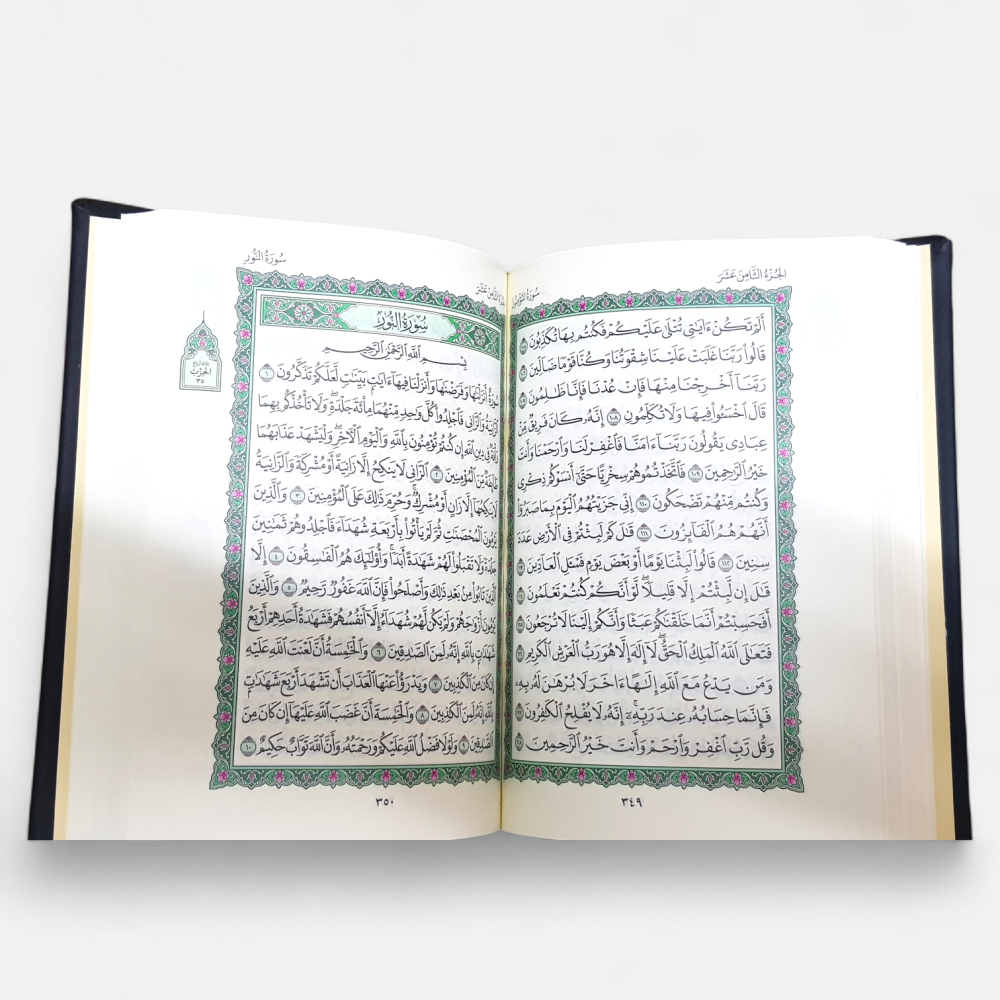 الجُزْءُ الثَّامِنَ عَشَرَ
سُورَةُ المُؤْمِنُونَ
أَلَمْ تَكُنْ ءَايَٰتِى تُتْلَىٰ عَلَيْكُمْ فَكُنتُم بِهَا تُكَذِّبُونَ ١٠٥
قَالُوا۟ رَبَّنَا غَلَبَتْ عَلَيْنَا شِقْوَتُنَا وَكُنَّا قَوْمًا ضَآلِّينَ ١٠٦
رَبَّنَآ أَخْرِجْنَا مِنْهَا فَإِنْ عُدْنَا فَإِنَّا ظَٰلِمُونَ ١٠٧
قَالَ ٱخْسَـُٔوا۟ فِيهَا وَلَا تُكَلِّمُونِ ١٠٨ إِنَّهُۥ كَانَ فَرِيقٌ مِّنْ
عِبَادِى يَقُولُونَ رَبَّنَآ ءَامَنَّا فَٱغْفِرْ لَنَا وَٱرْحَمْنَا وَأَنتَ
خَيْرُ ٱلرَّٰحِمِينَ ١٠٩ فَٱتَّخَذْتُمُوهُمْ سِخْرِيًّا حَتَّىٰٓ أَنسَوْكُمْ ذِكْرِى
وَكُنتُم مِّنْهُمْ تَضْحَكُونَ ١١٠ إِنِّى جَزَيْتُهُمُ ٱلْيَوْمَ بِمَا صَبَرُوٓا۟
أَنَّهُمْ هُمُ ٱلْفَآئِزُونَ ١١١ قَٰلَ كَمْ لَبِثْتُمْ فِى ٱلْأَرْضِ عَدَدَ
سِنِينَ ١١٢ قَالُوا۟ لَبِثْنَا يَوْمًا أَوْ بَعْضَ يَوْمٍ فَسْـَٔلِ ٱلْعَآدِّينَ ١١٣
قَٰلَ إِن لَّبِثْتُمْ إِلَّا قَلِيلًا ۖ لَّوْ أَنَّكُمْ كُنتُمْ تَعْلَمُونَ ١١٤
أَفَحَسِبْتُمْ أَنَّمَا خَلَقْنَٰكُمْ عَبَثًا وَأَنَّكُمْ إِلَيْنَا لَا تُرْجَعُونَ ١١٥
فَتَعَٰلَى ٱللَّهُ ٱلْمَلِكُ ٱلْحَقُّ ۖ لَآ إِلَٰهَ إِلَّا هُوَ رَبُّ ٱلْعَرْشِ ٱلْكَرِيمِ ١١٦
وَمَن يَدْعُ مَعَ ٱللَّهِ إِلَٰهًا ءَاخَرَ لَا بُرْهَٰنَ لَهُۥ بِهِۦ
فَإِنَّمَا حِسَابُهُۥ عِندَ رَبِّهِۦٓ ۚ إِنَّهُۥ لَا يُفْلِحُ ٱلْكَٰفِرُونَ ١١٧
وَقُل رَّبِّ ٱغْفِرْ وَٱرْحَمْ وَأَنتَ خَيْرُ ٱلرَّٰحِمِينَ ١١٨
٣٤٩
الجُزْءُ الثَّامِنَ عَشَرَ
سُورَةُ النُّورِ
سُورَةُ النُّورِ
بِسْمِ ٱللَّهِ ٱلرَّحْمَٰنِ ٱلرَّحِيمِ
سُورَةٌ أَنزَلْنَٰهَا وَفَرَضْنَٰهَا وَأَنزَلْنَا فِيهَآ ءَايَٰتٍۭ بَيِّنَٰتٍ لَّعَلَّكُمْ تَذَكَّرُونَ ١
ٱلزَّانِيَةُ وَٱلزَّانِى فَٱجْلِدُوا۟ كُلَّ وَٰحِدٍ مِّنْهُمَا مِا۟ئَةَ جَلْدَةٍ ۖ وَلَا تَأْخُذْكُم بِهِمَا
رَأْفَةٌ فِى دِينِ ٱللَّهِ إِن كُنتُمْ تُؤْمِنُونَ بِٱللَّهِ وَٱلْيَوْمِ ٱلْءَاخِرِ ۖ وَلْيَشْهَدْ عَذَابَهُمَا
طَآئِفَةٌ مِّنَ ٱلْمُؤْمِنِينَ ٢ ٱلزَّانِى لَا يَنكِحُ إِلَّا زَانِيَةً أَوْ مُشْرِكَةً وَٱلزَّانِيَةُ
لَا يَنكِحُهَآ إِلَّا زَانٍ أَوْ مُشْرِكٌ ۚ وَحُرِّمَ ذَٰلِكَ عَلَى ٱلْمُؤْمِنِينَ ٣ وَٱلَّذِينَ
يَرْمُونَ ٱلْمُحْصَنَٰتِ ثُمَّ لَمْ يَأْتُوا۟ بِأَرْبَعَةِ شُهَدَآءَ فَٱجْلِدُوهُمْ ثَمَٰنِينَ
جَلْدَةً وَلَا تَقْبَلُوا۟ لَهُمْ شَهَٰدَةً أَبَدًا ۚ وَأُو۟لَٰٓئِكَ هُمُ ٱلْفَٰسِقُونَ ٤ إِلَّا
ٱلَّذِينَ تَابُوا۟ مِنۢ بَعْدِ ذَٰلِكَ وَأَصْلَحُوا۟ فَإِنَّ ٱللَّهَ غَفُورٌ رَّحِيمٌ ٥ وَٱلَّذِينَ
يَرْمُونَ أَزْوَٰجَهُمْ وَلَمْ يَكُن لَّهُمْ شُهَدَآءُ إِلَّآ أَنفُسُهُمْ فَشَهَٰدَةُ أَحَدِهِمْ أَرْبَعُ
شَهَٰدَٰتٍۭ بِٱللَّهِ ۙ إِنَّهُۥ لَمِنَ ٱلصَّٰدِقِينَ ٦ وَٱلْخَٰمِسَةُ أَنَّ لَعْنَتَ ٱللَّهِ عَلَيْهِ
إِن كَانَ مِنَ ٱلْكَٰذِبِينَ ٧ وَيَدْرَؤُا۟ عَنْهَا ٱلْعَذَابَ أَن تَشْهَدَ أَرْبَعَ شَهَٰدَٰتٍۭ
بِٱللَّهِ ۙ إِنَّهُۥ لَمِنَ ٱلْكَٰذِبِينَ ٨ وَٱلْخَٰمِسَةَ أَنَّ غَضَبَ ٱللَّهِ عَلَيْهَآ إِن كَانَ مِنَ
ٱلصَّٰدِقِينَ ٩ وَلَوْلَا فَضْلُ ٱللَّهِ عَلَيْكُمْ وَرَحْمَتُهُۥ وَأَنَّ ٱللَّهَ تَوَّابٌ حَكِيمٌ ١٠
الحِزْبُ
٣٥
٣٥٠